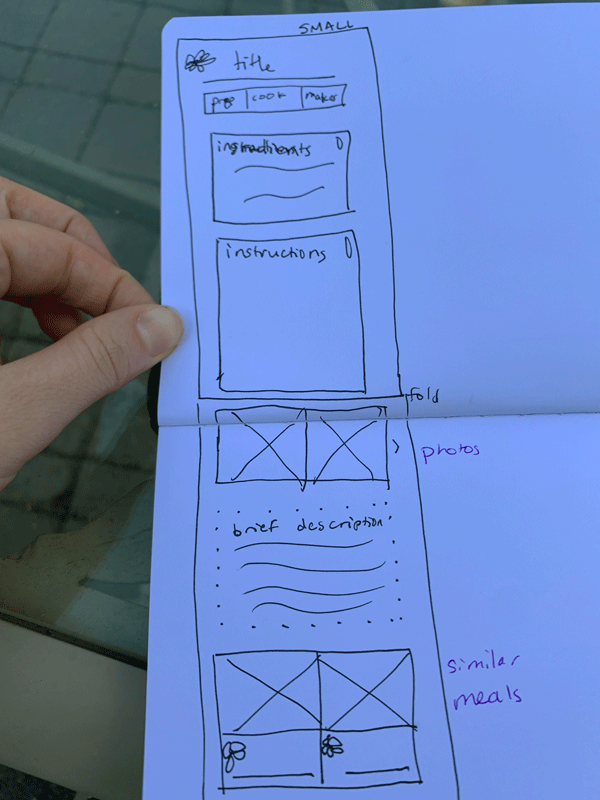 SMALL
title
prep cook makes
ingredients 0
instructions 0
fold
photos
brief description
similar
meals